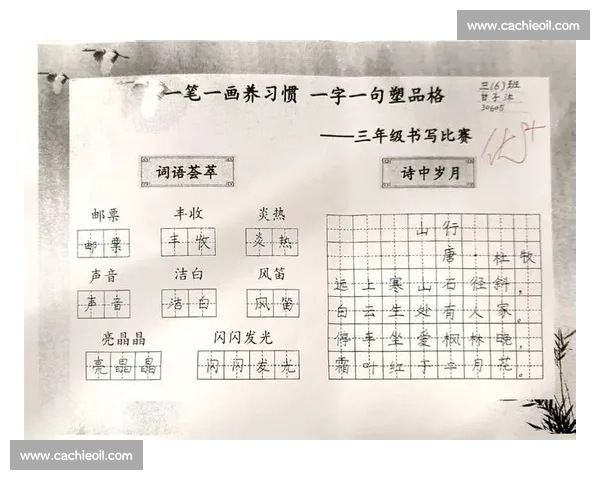 www.cachieoil.com
一笔一画养习惯 一字一句塑品格
三(6)班
甘子沐
30605
——三年级书写比赛
优8+
词语荟萃
诗中岁月
邮票 丰收 炎热
邮票 丰收 炎热
声音 洁白 风笛
声音 洁白 风笛
亮晶晶 闪闪发光
亮晶晶 闪闪发光
山行
唐·杜牧
远上寒山石径斜,
白云生处有人家。
停车坐爱枫林晚,
霜叶红于二月花。
www.cachieoil.com